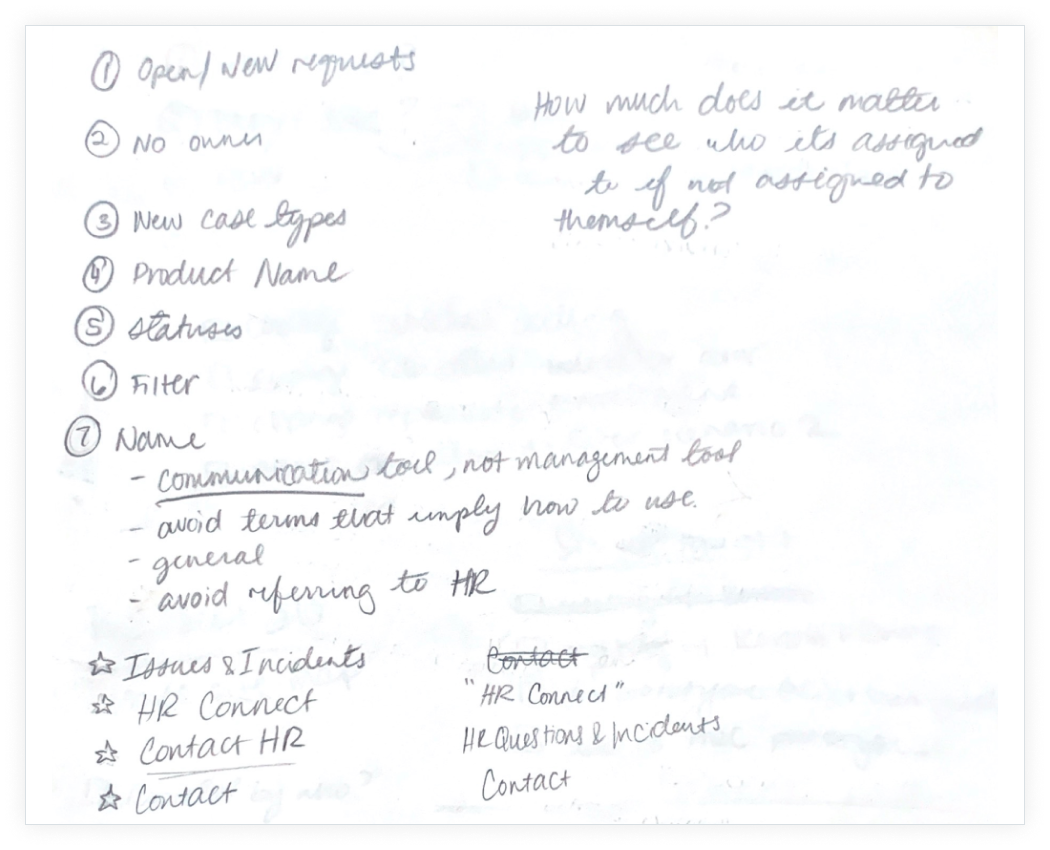 ① Open/New requests
② No owner
③ New case types
④ Product Name
⑤ Statuses
⑥ Filter
⑦ Name
- communication tool, not management tool
- avoid terms that imply how to use.
- general
- avoid referring to HR
☆ Issues & Incidents
☆ HR Connect
☆ Contact HR
☆ Contact
How much does it matter
to see who its assigned
to if not assigned to
themself?
Contact
"HR Connect"
HR Questions & Incidents
Contact